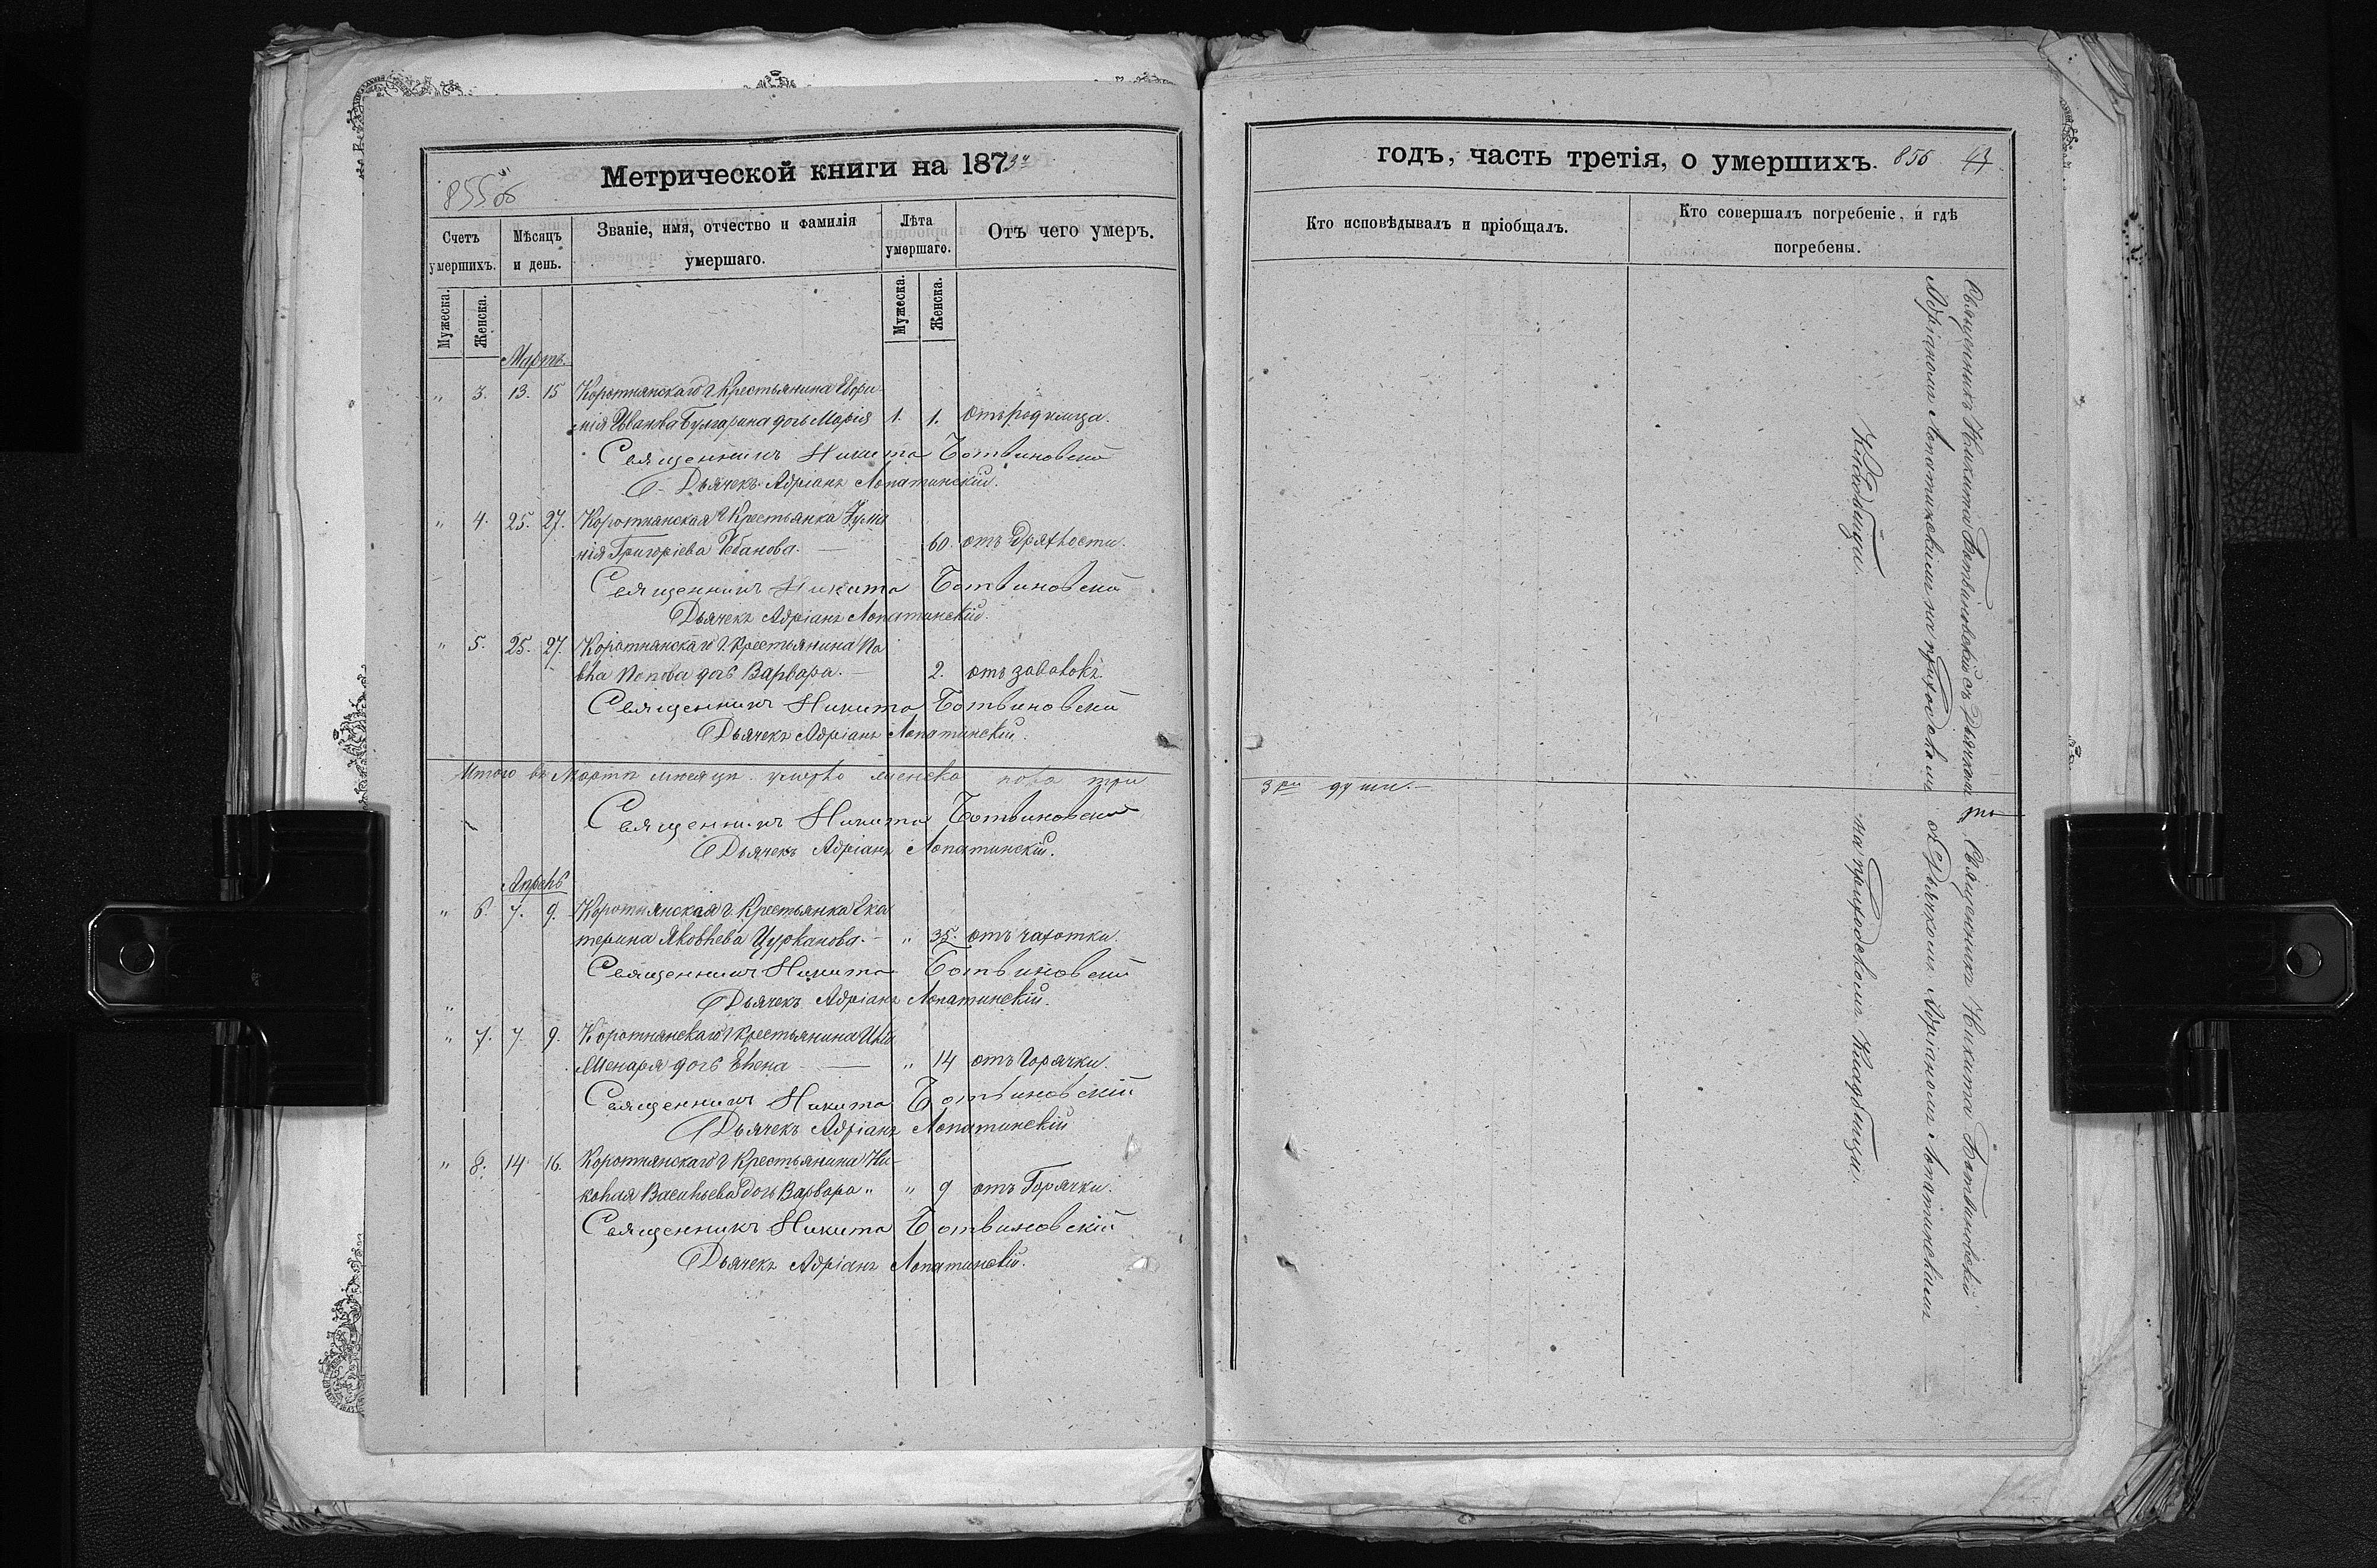 855 об
Метрической книги на 1873й
годъ, часть третія, о умершихъ. 856 43
Счетъ умершихъ.
Мѣсяцъ и день.
Званіе, имя, отчество и фамилія умершаго.
Лѣта умершаго.
Отъ чего умеръ.
Кто исповѣдывалъ и пріобщалъ.
Кто совершалъ погребеніе, и гдѣ погребены.
Мужеска.
Женска.
Мужеска.
Женска.
Мартъ
„ 3. 13. 15 Коротнянскаго Крестьянина
Иванова Булгарина дочь Марія 1. 1. отъ родимца.
Священникъ Никита Ботвиновскій
Дьячекъ Адріанъ Лопатинскій.
„ 4. 25. 27. Коротнянская Крестьянка
Григоріева Чебанова. — 60. отъ дряхлости.
Священникъ Никита Ботвиновскій
Дьячекъ Адріанъ Лопатинскій.
„ 5. 25. 27. Коротнянскаго Крестьянина Па
вла Попова дочь Варвара. — 2. отъ завалокъ.
Священникъ Никита Ботвиновскій
Дьячекъ Адріанъ Лопатинскій.
Итого въ Мартѣ мѣсяцѣ умерло женска пола три
3ри души. —
Священникъ Никита Ботвиновскій
Дьячекъ Адріанъ Лопатинскій.
Апрель
„ 6. 7. 9. Коротнянская Крестьянка Ека
терина Яковлева Цурканова. — „ 35. отъ чахотки.
Священникъ Никита Ботвиновскій
Дьячекъ Адріанъ Лопатинскій.
„
„ 7. 7. 9. Коротнянскаго Крестьянина Иліи
Менаря дочь Елена — „ 14 отъ Горячки.
Священникъ Никита Ботвиновскій
Дьячекъ Адріанъ Лопатинскій
„ 8. 14 16. Коротнянскаго Крестьянина Ни-
колая Васильева дочь Варвара „ „ 9 отъ Горячки.
Священникъ Никита Ботвиновскій
Дьячекъ Адріанъ Лопатинскій.
Священникъ Никита Ботвиновскій съ Дьячкомъ
Адріаномъ Лопатинскимъ на приходскомъ
Кладбищи.
Священникъ Никита Ботвиновскій
съ Дьячкомъ Адріаномъ Лопатинскимъ
на приходскомъ Кладбищи.